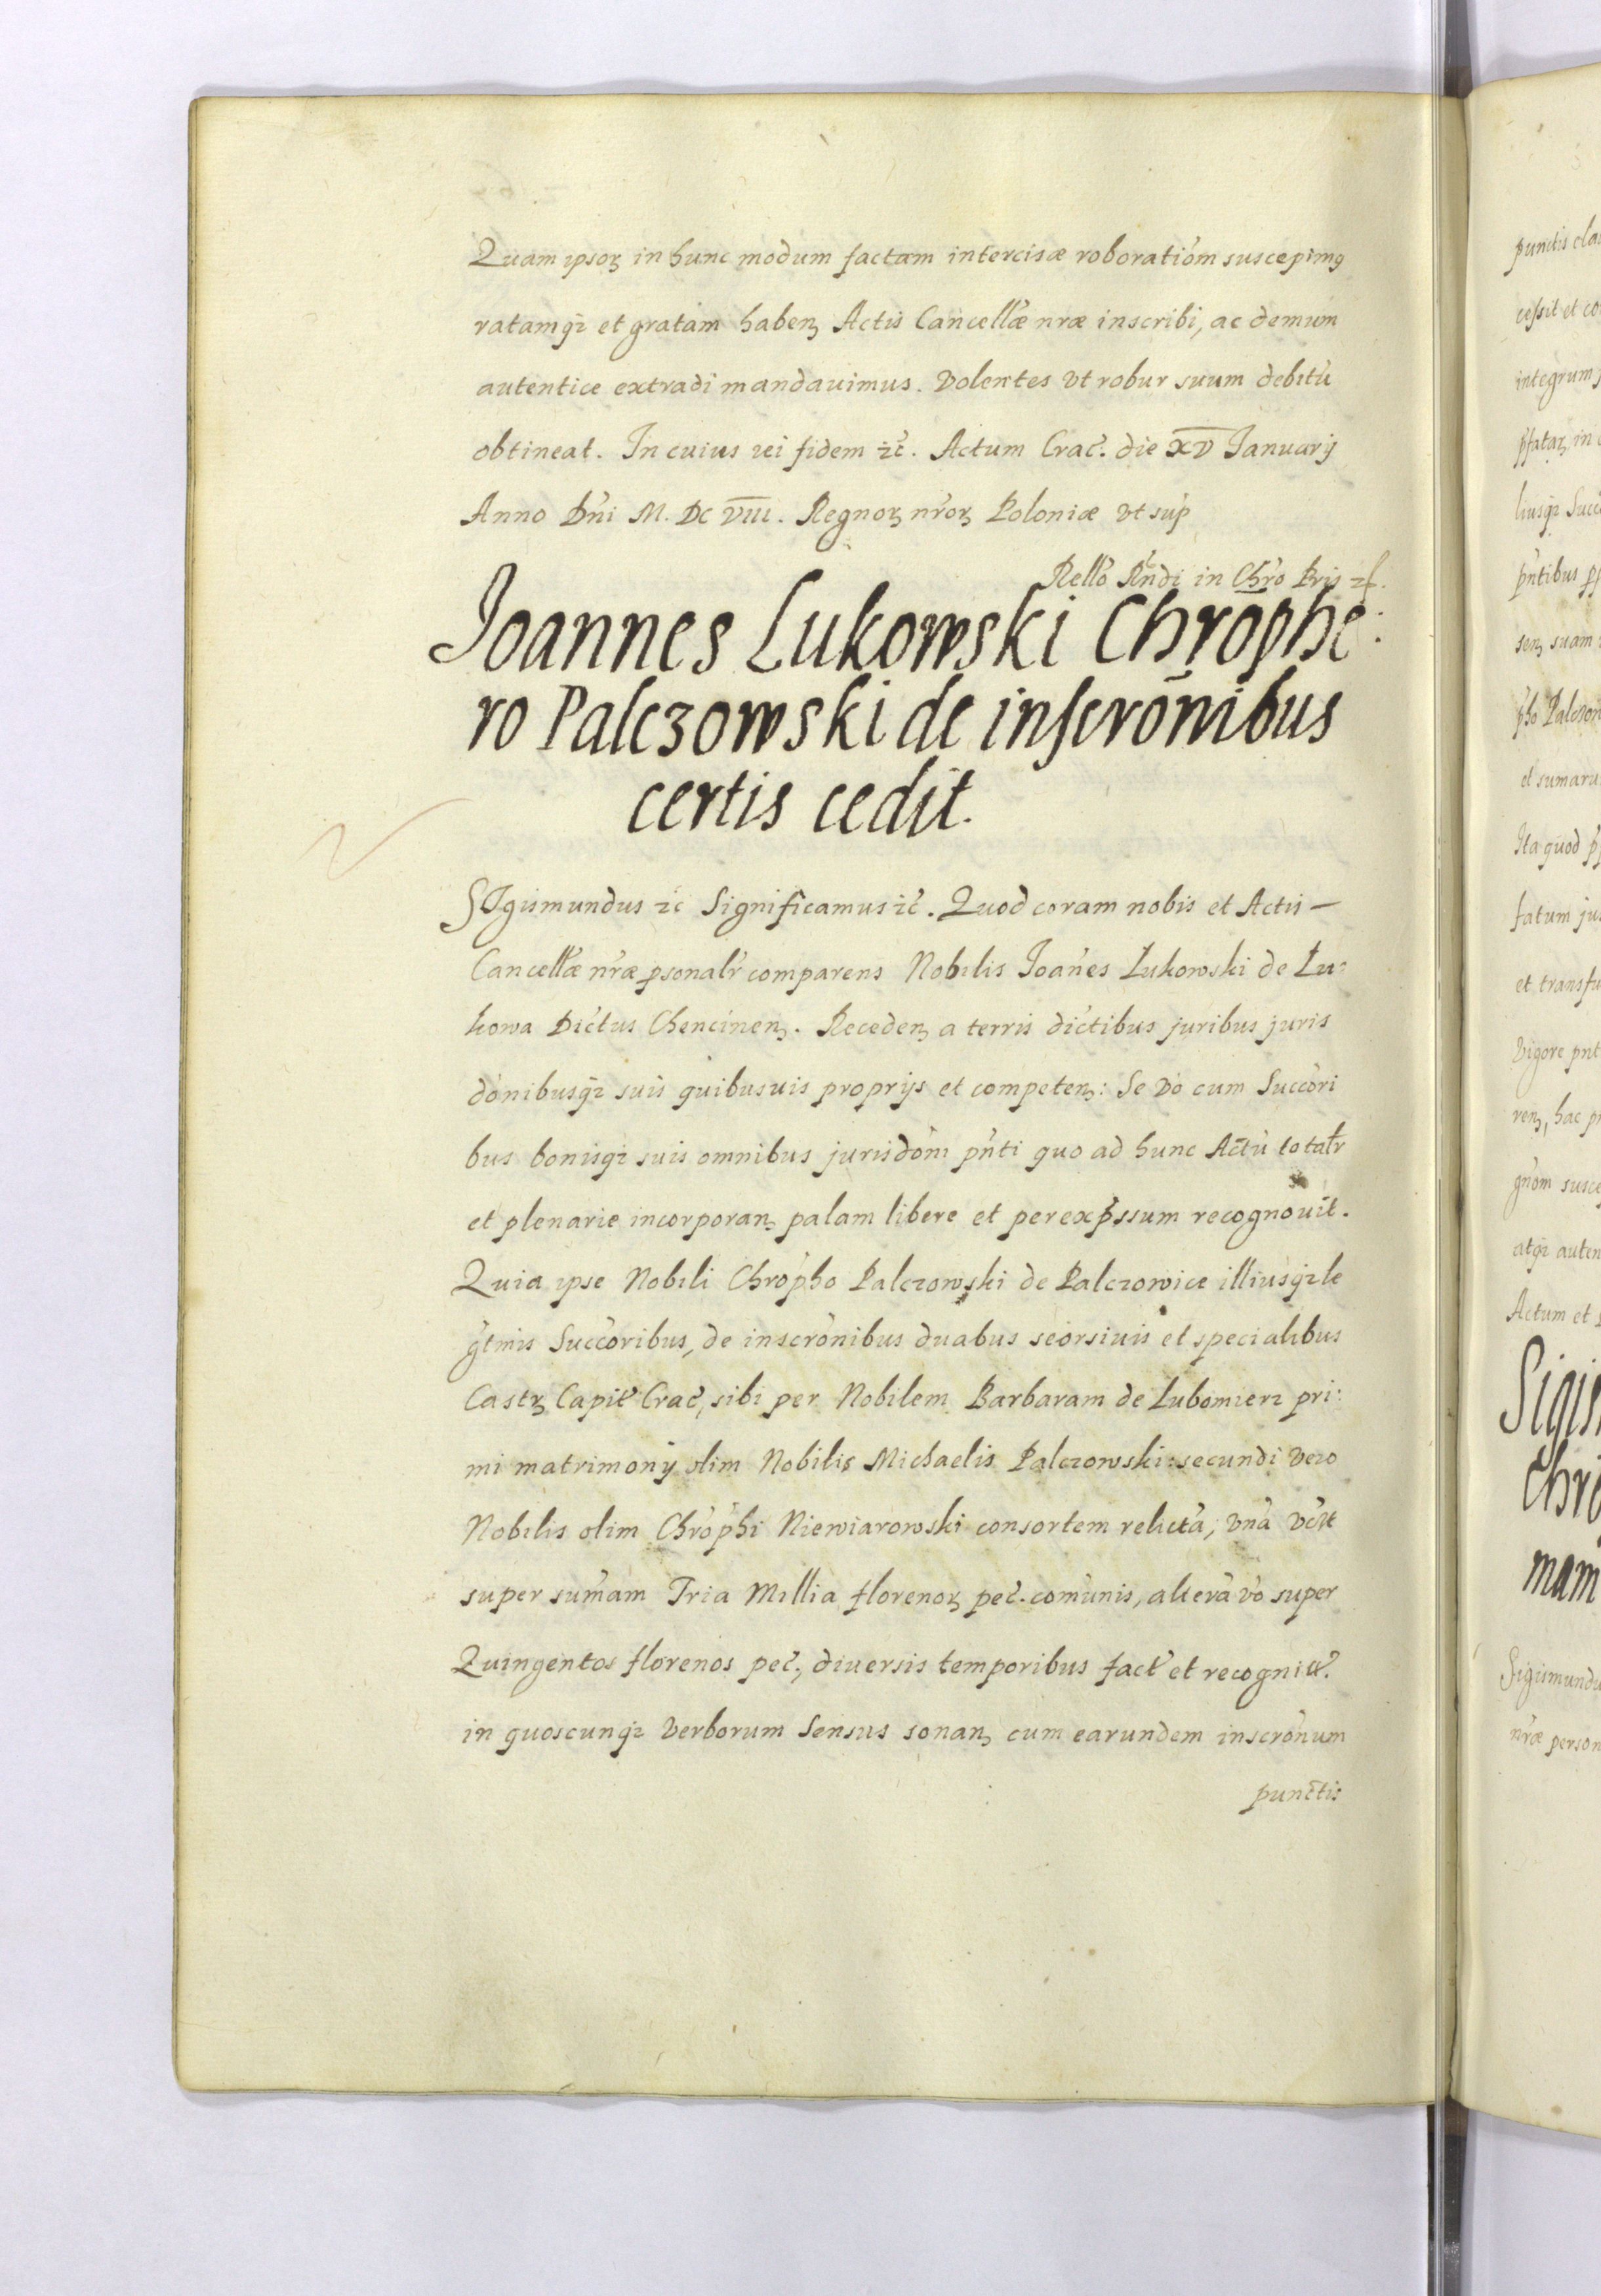 Quam ipsoꝝ in hunc modum factam intercisæ roboratiõm suscepimꝰ
ratamqꝫ et gratam habenꝭ Actis Cancellæ nr̃æ inscribi, ac demum
autentice extradi mandauimus. Volentes vt robur suum debitũ
obtineat. In cuius rei fidem ꝛc̃. Actum Crac̃. die XV Januarij
Anno Dñi M. DC VIII. Regnoꝝ nr̃oꝝ Poloniæ vt sup̃
Rell̃o Rñdi in Chr̃o Pris ꝛc̃.
Joannes Lukowski Chrõphe:
ro Palczowski de inscrõnibus
certis cedit.
SIgismundus ꝛc Significamus ꝛc̃. Quod coram nobis et Actis —
Cancell̃æ nr̃æ ꝑsonalr̃ comparens Nobilis Joañes Lukowski de Lu:
kowa Dictus Chencinenꝭ. Recedenꝭ a terris dictibus juribus juris
dõnibusqꝫ suis quibusuis proprijs et competenꝭ: Se vo cum Succõri
bus bonisqꝫ suis omnibus jurisdõni pñti quo ad hunc Actũ totalr̃
et plenarie incorporanꝭ palam libere et per exp̃ssum recognouit.
Quia ipse Nobili Chrõpho Palczowski de Palczowice illiusqꝫ le
g̃tmis Succõribus, de inscrõnibus duabus seorsiuis et specialibus
Castꝝ Capit̃ Crac̃, sibi per Nobilem Barbaram de Lubomierz pri:
mi matrimonij olim Nobilis Michaelis Palczowski: secundi vero
Nobilis olim Chrõphi Niewiarowski consortem relictã, vnã vc̃lt
super sum̃am Tria Millia florenoꝝ pec̃. com̃unis, alterã vo super
Quingentos florenos pec̃, diuersis temporibus fact̃ et recognit̃.
in quoscunqꝫ verborum sensus sonanꝭ cum earundem inscrõnum
punctis